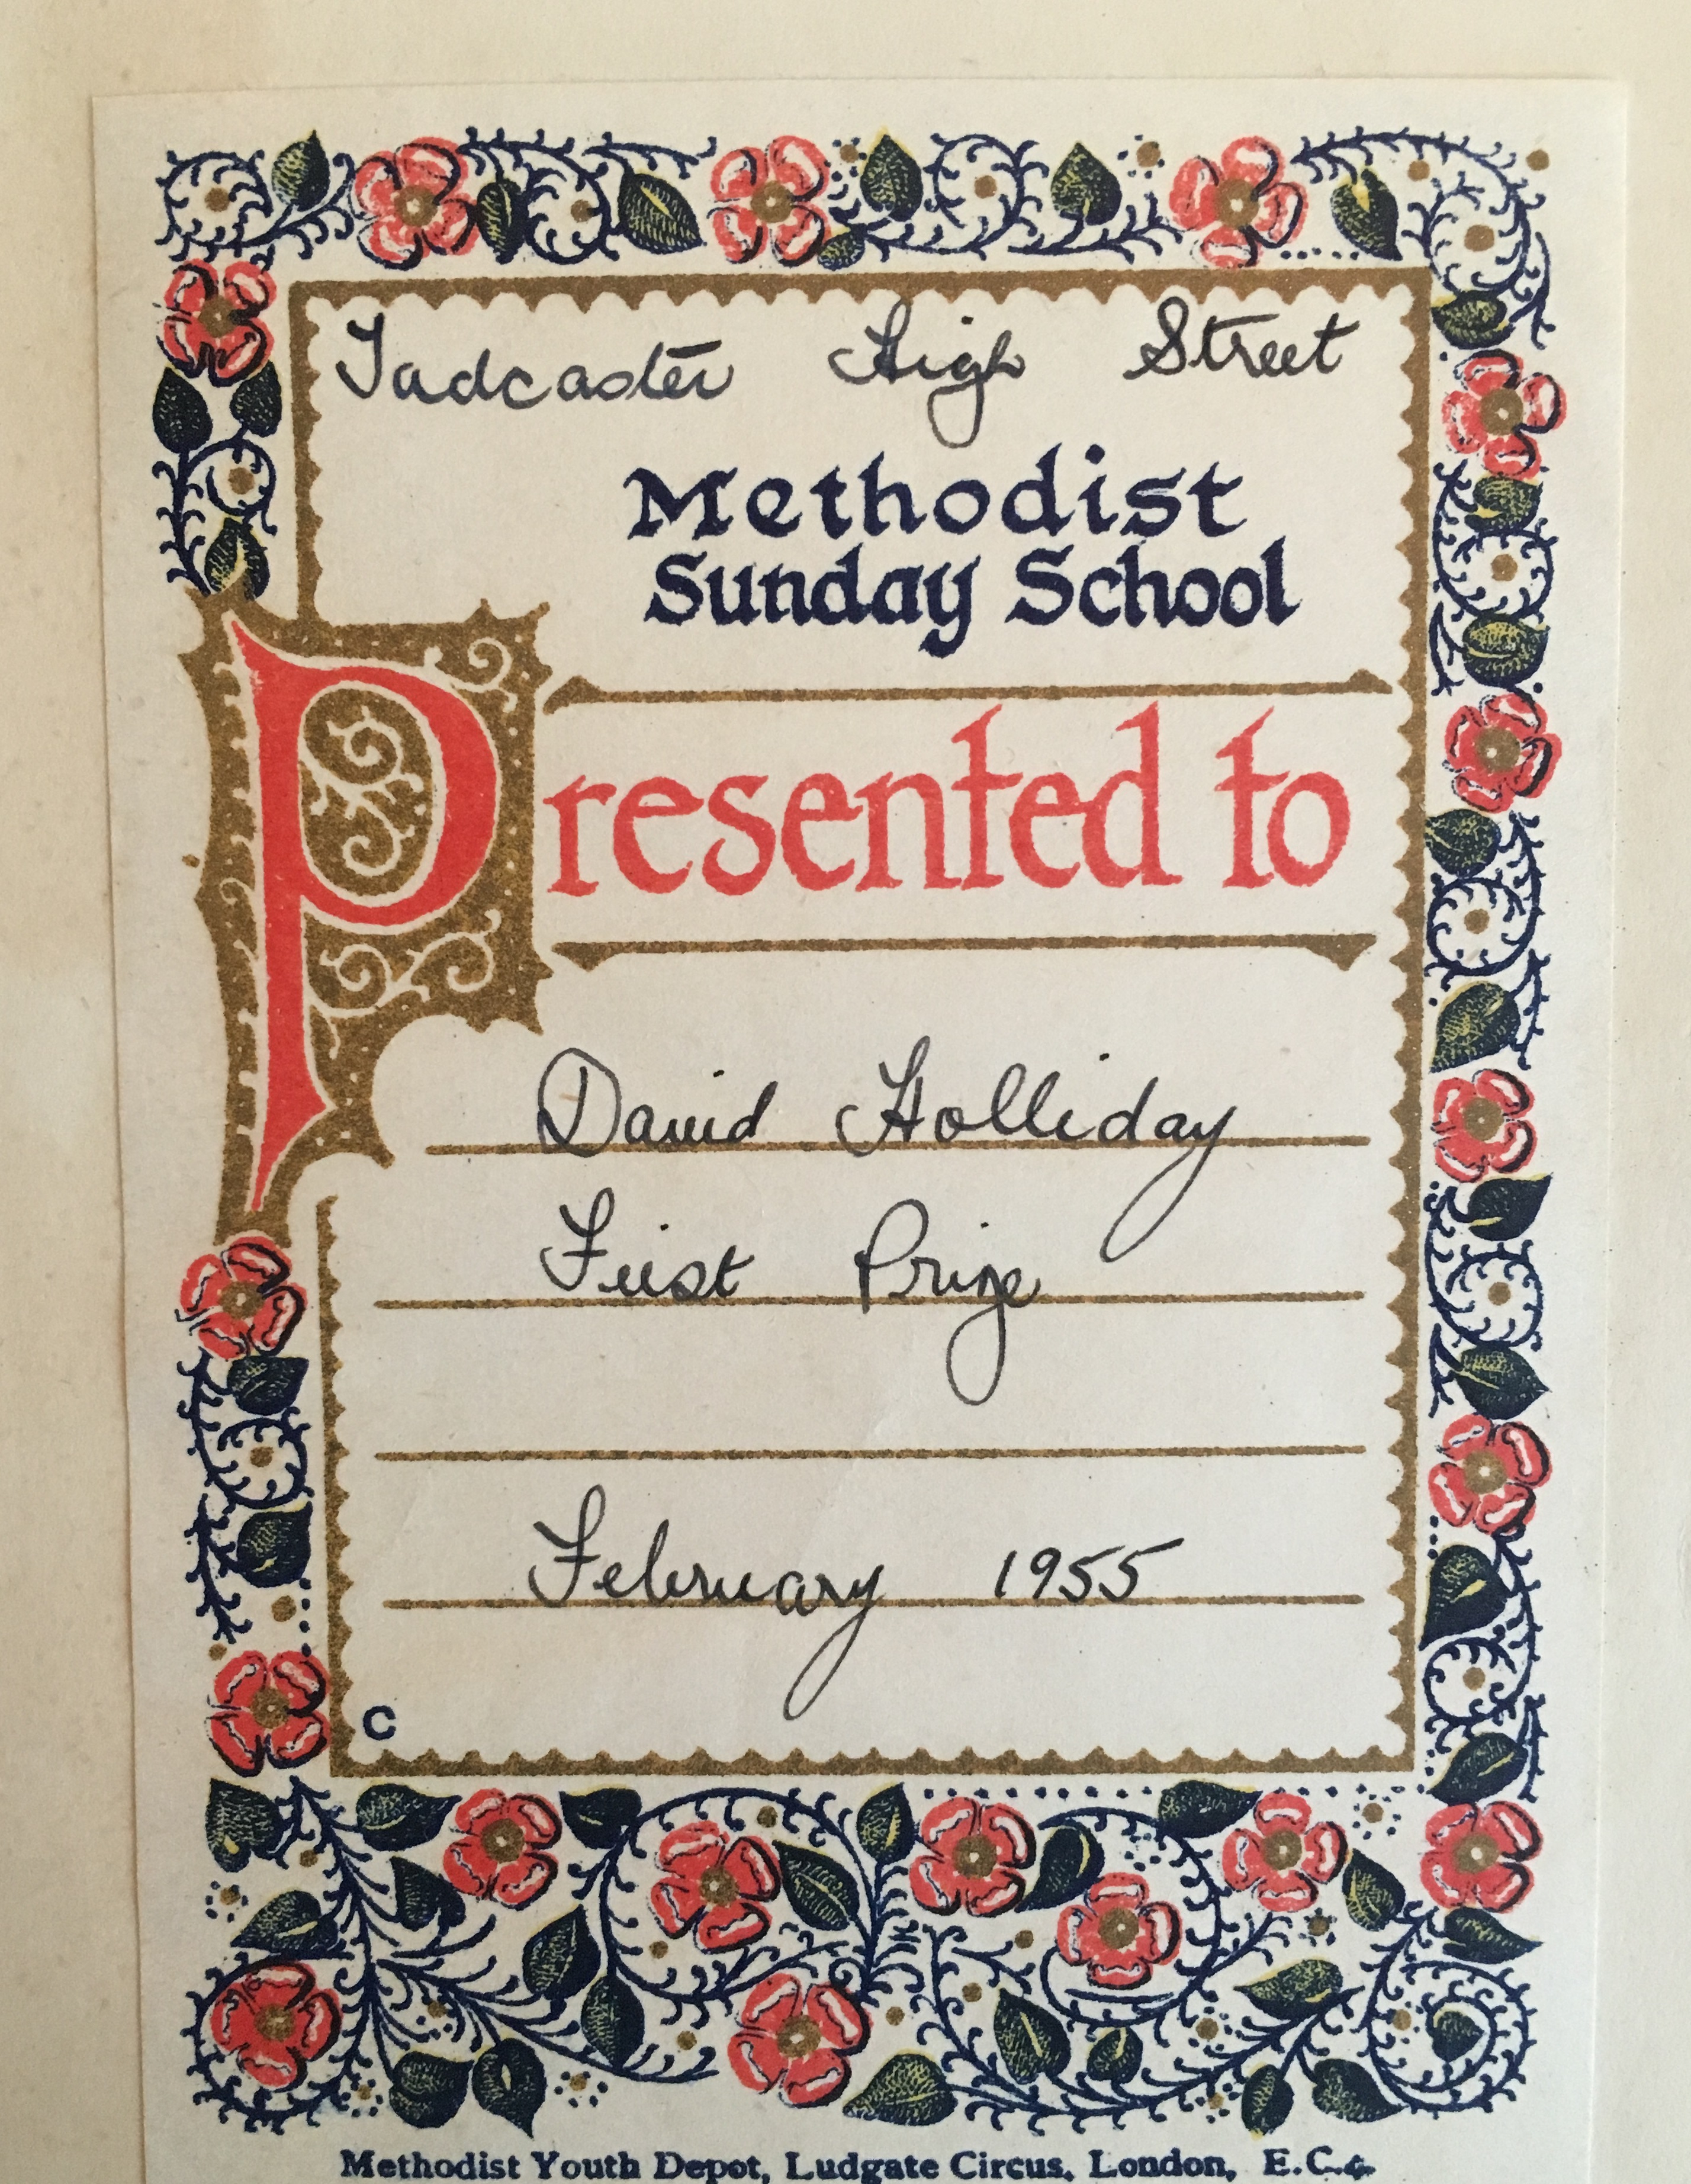 Tadcaster High Street
Methodist
Sunday School
Presented to
David Holliday
First Prize
February 1955
C
Methodist Youth Depot, Ludgate Circus, London, E.C.4.